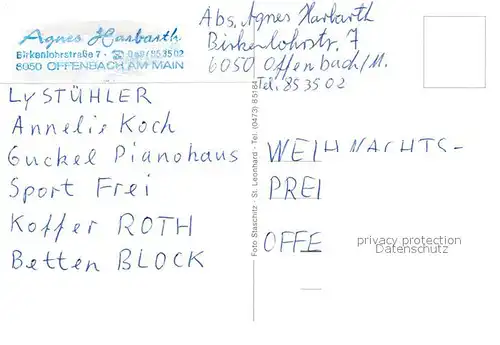 Agnes Harbarth
Birkenlohrstraße 7 - ☎ 069/853502
6050 OFFENBACH AM MAIN
Abs. Agnes Harbarth
Birkenlohrstr. 7
6050 Offenbach/M.
Tel. 85 35 02
LY STÜHLER
Annelis Koch
Guckel Pianohaus
Sport Frei
Koffer ROTH
Betten BLOCK
Foto Staschitz - St. Leonhard - Tel. (0473) 85184
WEIHNACHTS-
PREI
OFFE
privacy protection
Datenschutz